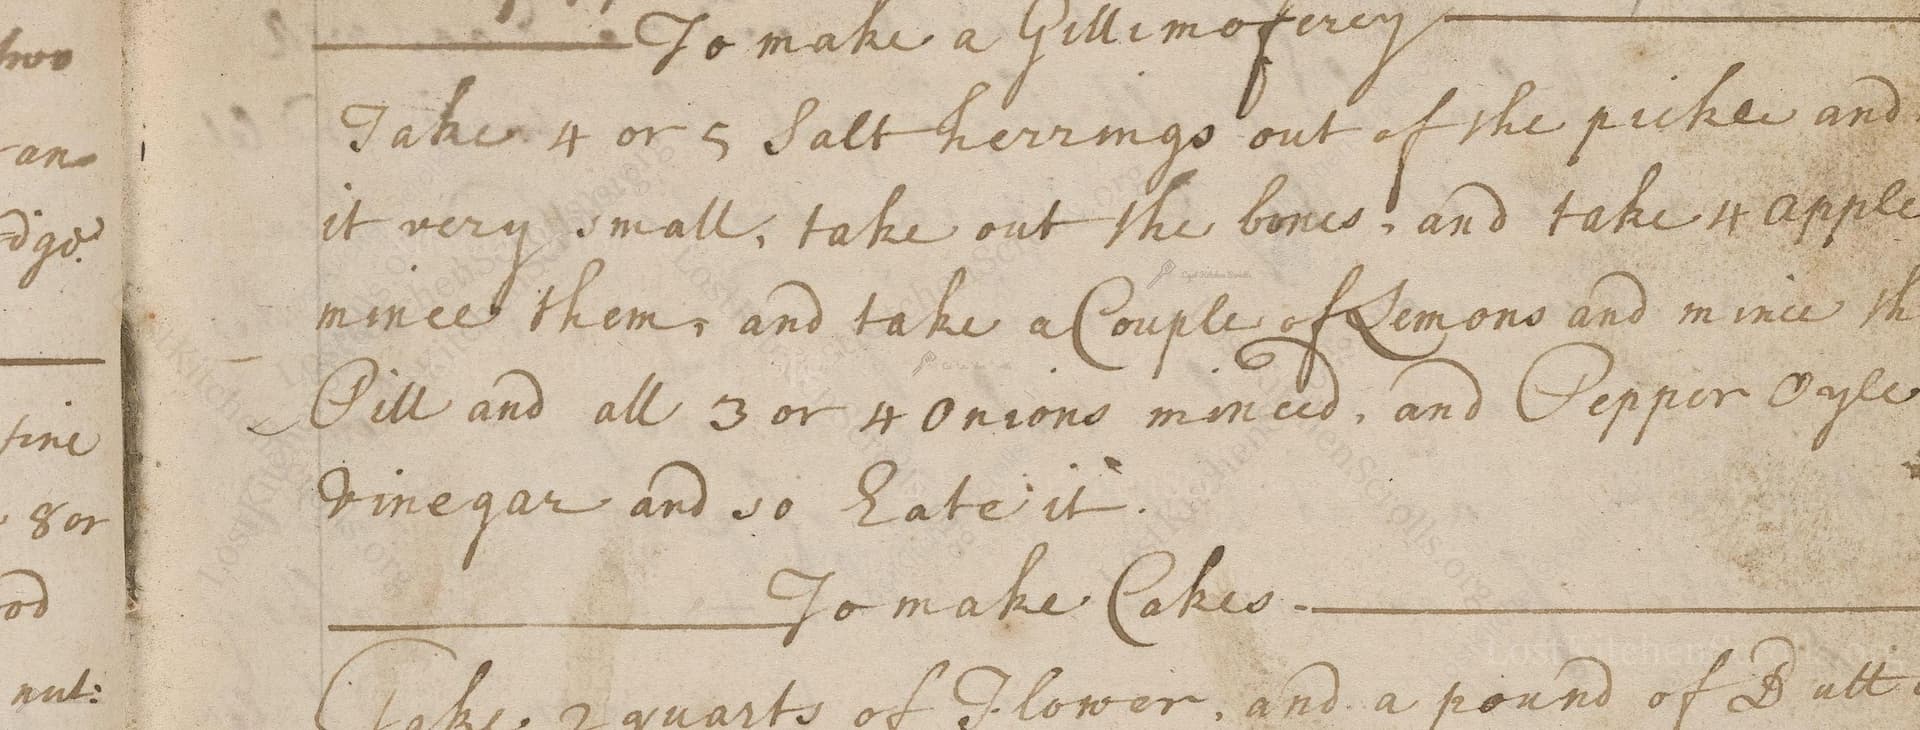 two
an
dge?
fine
8 or
od
nut:
To make a Gillimofrey
Take 4 or 5 Salt herrings out of the pickle and
it very small, take out the bones, and take 4 apple
mince them, and take a Couple of Lemons and mince th
Pill and all 3 or 4 Onions minced, and Pepper Oyle
Vinegar and so Eate it.
To make Cakes
Take 2 quarts of Flower, and a pound of Butt
LostKitchenScrolls.org